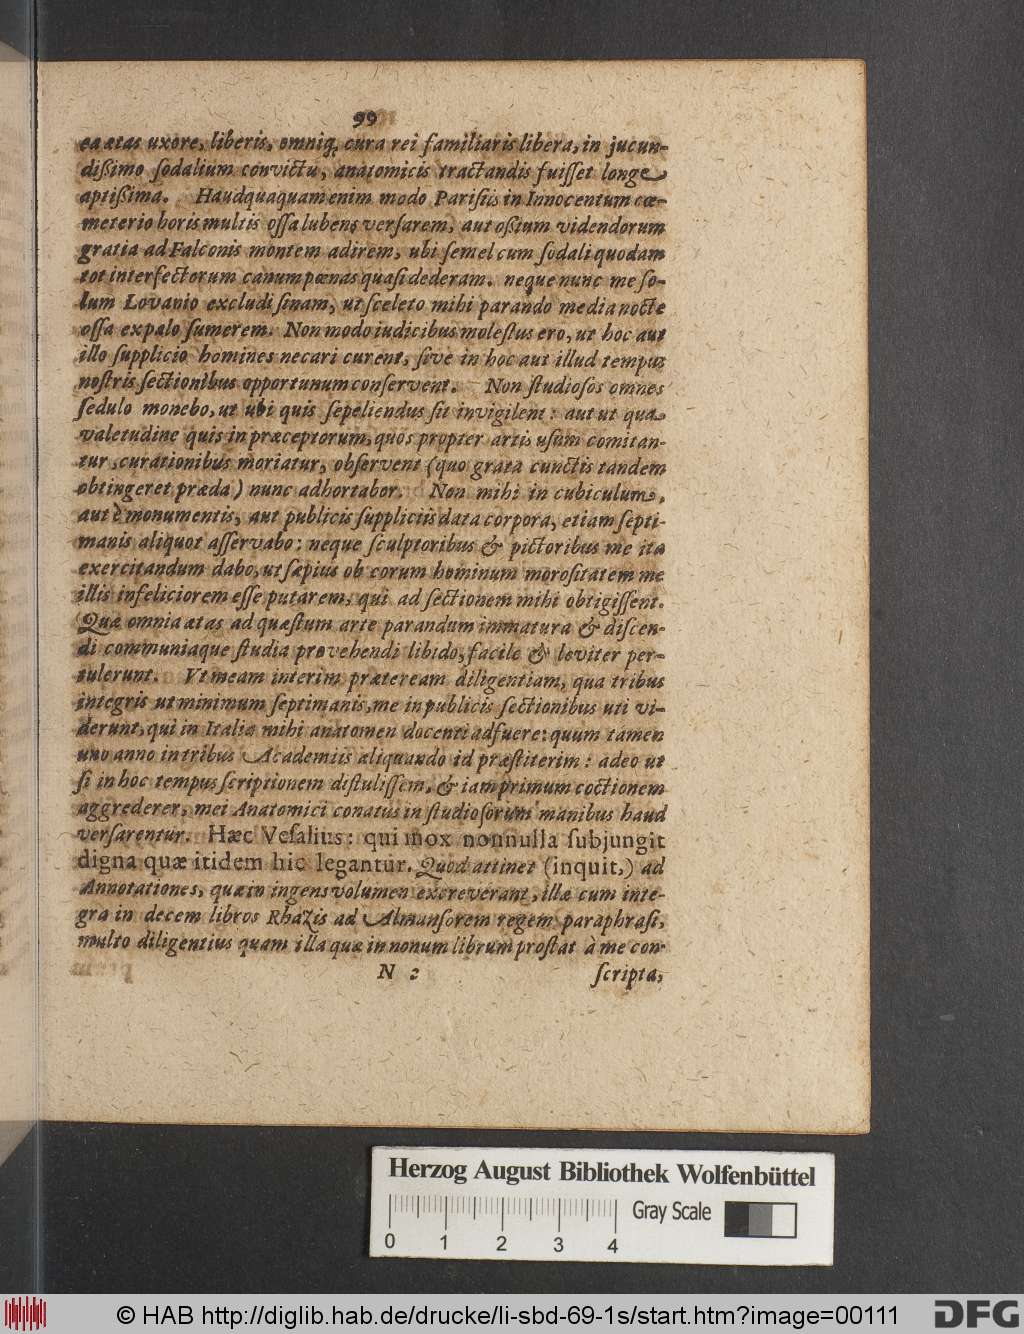 99
ea ætas uxore, liberis, omniq; cura rei familiaris libera, in jucun-
dißimo ſodalium convictu, anatomicis tractandis fuiſſet longe
aptißima. Haudquaquam enim modo Pariſiis in Innocentum cœ-
meterio horis multis oſſa lubens verſarem, aut oßium videndorum
gratia ad Falconis montem adirem, ubi ſemel cum ſodali quodam
tot interfectorum canum pœnas quaſi dederam. neque nunc me ſo-
lum Lovanio excludi ſinam, ut ſceleto mihi parando media nocte
oſſa ex palo ſumerem. Non modo iudicibus moleſtus ero, ut hoc aut
illo ſupplicio homines necari curent, ſive in hoc aut illud tempus
noſtris ſectionibus opportunum conſervent. Non ſtudioſos omnes
ſedulo monebo, ut ubi quis ſepeliendus ſit invigilent: aut ut qua
valetudine quis in præceptorum, quos propter artis uſum comitan-
tur, curationibus moriatur, obſervent (quo grata cunctis tandem
obtingeret præda) nunc adhortabor. Non mihi in cubiculum,
aut è monumentis, aut publicis ſuppliciis data corpora, etiam ſepti-
manis aliquot aſſervabo: neque ſculptoribus & pictoribus me ita
exercitandum dabo, ut ſæpius ob eorum hominum moroſitatem me
illis infeliciorem eſſe putarem, qui ad ſectionem mihi obtigiſſent.
Quæ omnia ætas ad quæſtum arte parandum immatura & diſcen-
di communiaque ſtudia provehendi libido, facile & leviter per-
tulerunt. Vt meam interim præteream diligentiam, qua tribus
integris ut minimum ſeptimanis, me in publicis ſectionibus uti vi-
derunt, qui in Italia mihi anatomen docenti adfuere: quum tamen
uno anno in tribus Academiis aliquando id præſtiterim: adeo ut
ſi in hoc tempus ſcriptionem diſtuliſſem, & iam primum coctionem
aggrederer, mei Anatomici conatus in ſtudioſorum manibus haud
verſarentur. Hæc Veſalius: qui mox nonnulla ſubjungit
digna quæ itidem hic legantur. Quod attinet (inquit,) ad
Annotationes, quæ in ingens volumen excreverant, illæ cum inte-
gra in decem libros Rhazis ad Almanſorem regem paraphraſi,
multo diligentius quam illa quæ in nonum librum proſtat à me con-
N 2 ſcripta,
Herzog August Bibliothek Wolfenbüttel
Gray Scale
0 1 2 3 4
© HAB http://diglib.hab.de/drucke/li-sbd-69-1s/start.htm?image=00111
DFG